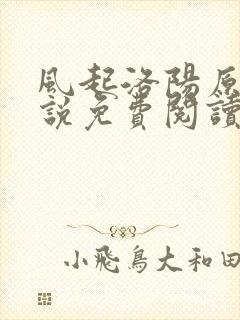 風起洛陽原
說免費閱讀
小飛鳥大和田